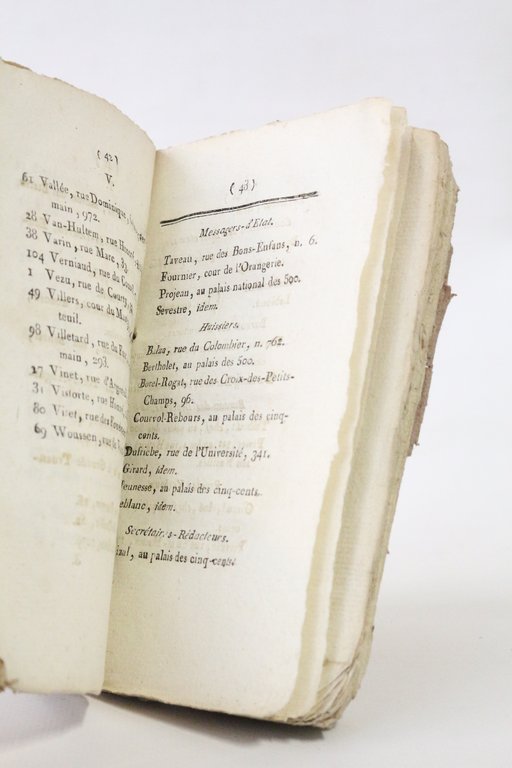 ( 42 )
V.
61 Vallée, rue Dominique,
main, 972.
28 Van-Hultem, rue
38 Varin, rue Marc, 33
104 Verniaud, rue de
1 Vezu, rue de Courty,
49 Villers, cour du
teuil.
98 Villetard, rue du
main, 293.
27 Vinet, rue
31 Vistorte, rue
80 Vivet, rue des
69 Woussen, rue de
( 43 )
Messagers-d'Etat.
Taveau, rue des Bons-Enfans, n. 6.
Fourmier, cour de l'Orangerie.
Projean, au palais national des 500.
Sevestre, idem.
Huissiers.
rue du Colombier, n. 762.
Bertholet, au palais des 500.
Borel-Rogat, rue des Croix-des-Petits-
Champs, 96.
Courvol-Rebours, au palais des cinq-
cents.
Dufriche, rue de l'Université, 341.
Girard, idem.
Jeunesse, au palais des cinq-cents.
eblanc, idem.
Secrétaires-Rédacteurs.
au palais des cinq-cents